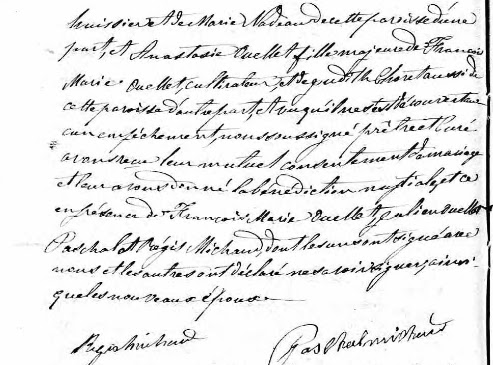 huissier et de Marie Nadeau de cette paroisse d'une
part, et Anastasie Ouellet fille majeure de François
Marie Ouellet, cultivateur, et de Judith Choret aussi de
cette paroisse d'autre part, et vu qu'il ne s'est découvert
aucun empêchement nous soussigné prêtre et Curé
avons reçu leur mutuel consentement de mariage
et leur avons donné la bénédiction nuptiale, et ce
en présence de François Marie Ouellet, Julien Ouellet
Paschal et Régis Michaud, dont les uns ont signé avec
nous et les autres ont déclaré ne savoir signer, ainsi
que les nouveaux époux
Regis Michaud
Paschal Michaud